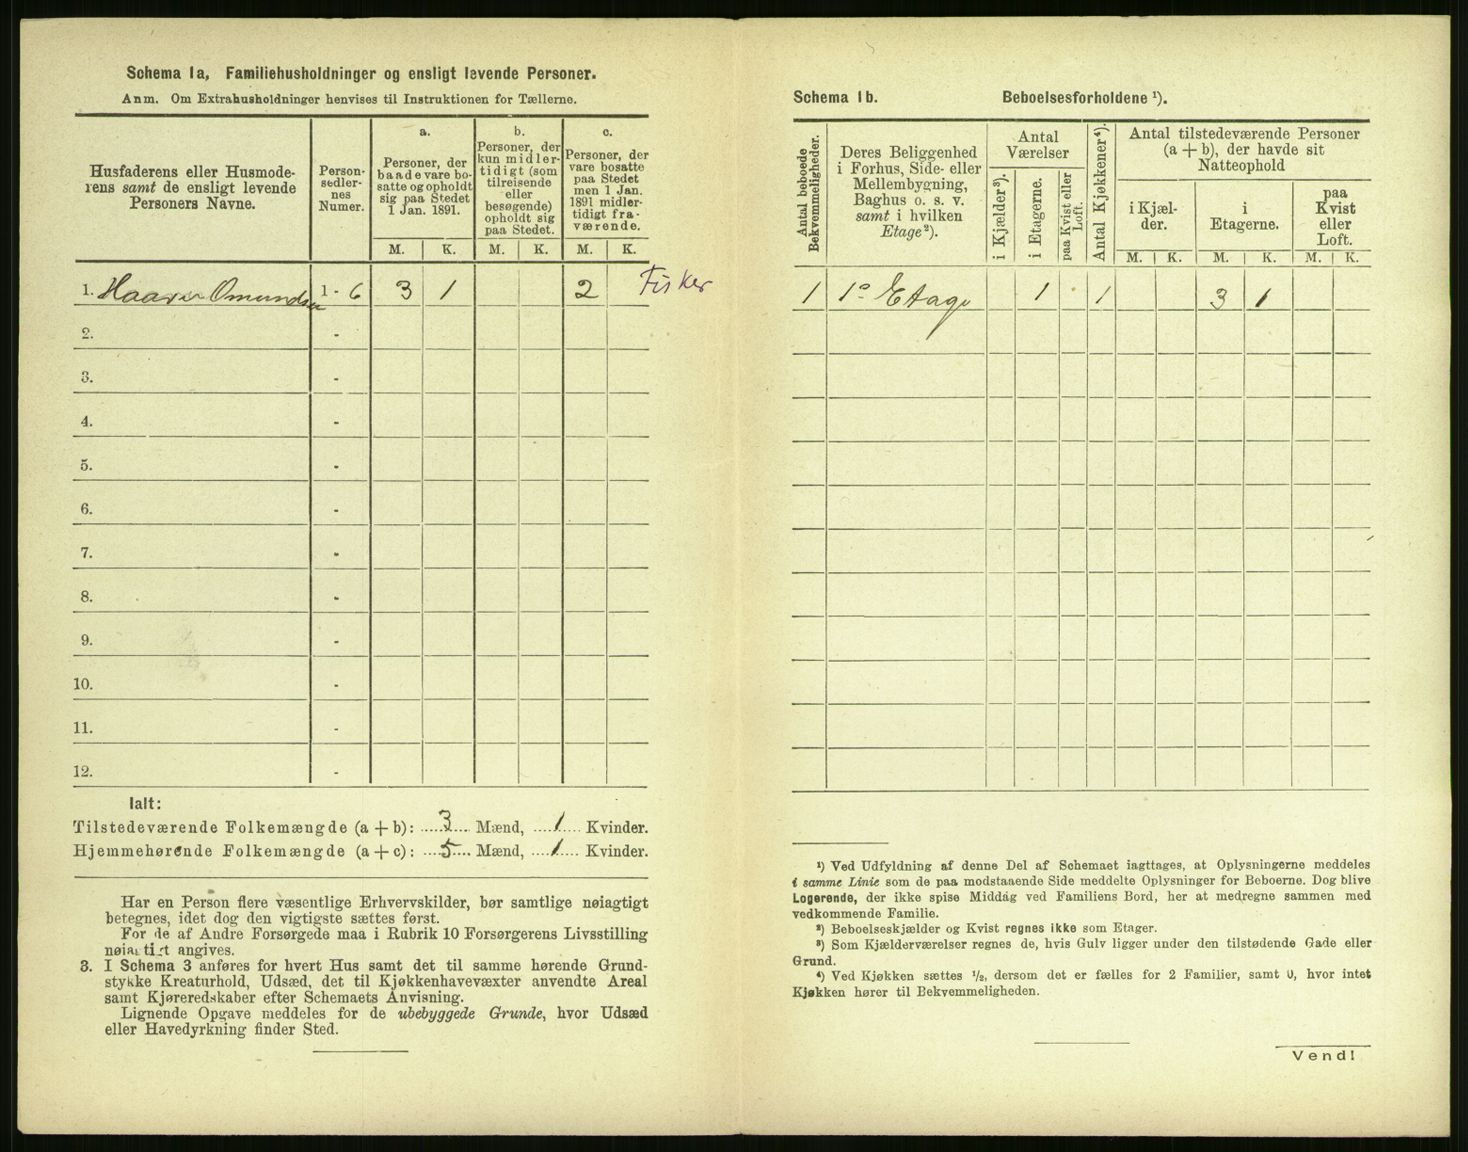 Schema 1a, Familiehusholdninger og ensligt levende Personer.
Anm. Om Extrahusholdninger henvises til Instruktionen for Tællerne.
Husfaderens eller Husmode-
rens samt de ensligt levende
Personers Navne.
Person-
sedler-
nes
Numer.
a.
Personer, der
baade vare bo-
satte og opholdt
sig paa Stedet
1 Jan. 1891.
b.
Personer, der
kun midler-
tidigt (som
tilreisende
eller
besøgende)
opholdt sig
paa Stedet.
c.
Personer, der
vare bosatte
paa Stedet
men 1 Jan.
1891 midler-
tidigt fra-
værende.
M. K. M. K. M. K.
1. Omundsen 1 - 6 3 1 2 Fisker
2. -
3. -
4. -
5. -
6. -
7. -
8. -
9. -
10. -
11. -
12. -
Ialt:
Tilstedeværende Folkemængde (a + b): 3 Mænd, 1 Kvinder.
Hjemmehørende Folkemængde (a + c): 5 Mænd, 1 Kvinder.
Har en Person flere væsentlige Erhvervskilder, bør samtlige nøiagtigt
betegnes, idet dog den vigtigste sættes først.
For de af Andre Forsørgede maa i Rubrik 10 Forsørgerens Livsstilling
nøiagtigt angives.
3. I Schema 3 anføres for hvert Hus samt det til samme hørende Grund-
stykke Kreaturhold, Udsæd, det til Kjøkkenhavevæxter anvendte Areal
samt Kjøreredskaber efter Schemaets Anvisning.
Lignende Opgave meddeles for de ubebyggede Grunde, hvor Udsæd
eller Havedyrkning finder Sted.
Schema 1b. Beboelsesforholdene ¹).
Antal beboede
Bekvemmeligheder.
Deres Beliggenhed
i Forhus, Side- eller
Mellembygning,
Baghus o. s. v.
samt i hvilken
Etage ²).
Antal
Værelser
i Kjælder ³).
i Etagerne.
paa Kvist eller
Loft.
Antal Kjøkkener ⁴).
Antal tilstedeværende Personer
(a + b), der havde sit
Natteophold
i Kjæl-
der.
i
Etagerne.
paa
Kvist
eller
Loft.
M. K. M. K. M. K.
1 1ᵒ Etage 1 1 3 1
¹) Ved Udfyldning af denne Del af Schemaet iagttages, at Oplysningerne meddeles
i samme Linie som de paa modstaaende Side meddelte Oplysninger for Beboerne. Dog blive
Logerende, der ikke spise Middag ved Familiens Bord, her at medregne sammen med
vedkommende Familie.
²) Beboelseskjælder og Kvist regnes ikke som Etager.
³) Som Kjælderværelser regnes de, hvis Gulv ligger under den tilstødende Gade eller
Grund.
⁴) Ved Kjøkken sættes ½, dersom det er fælles for 2 Familier, samt 0, hvor intet
Kjøkken hører til Bekvemmeligheden.
Vend!